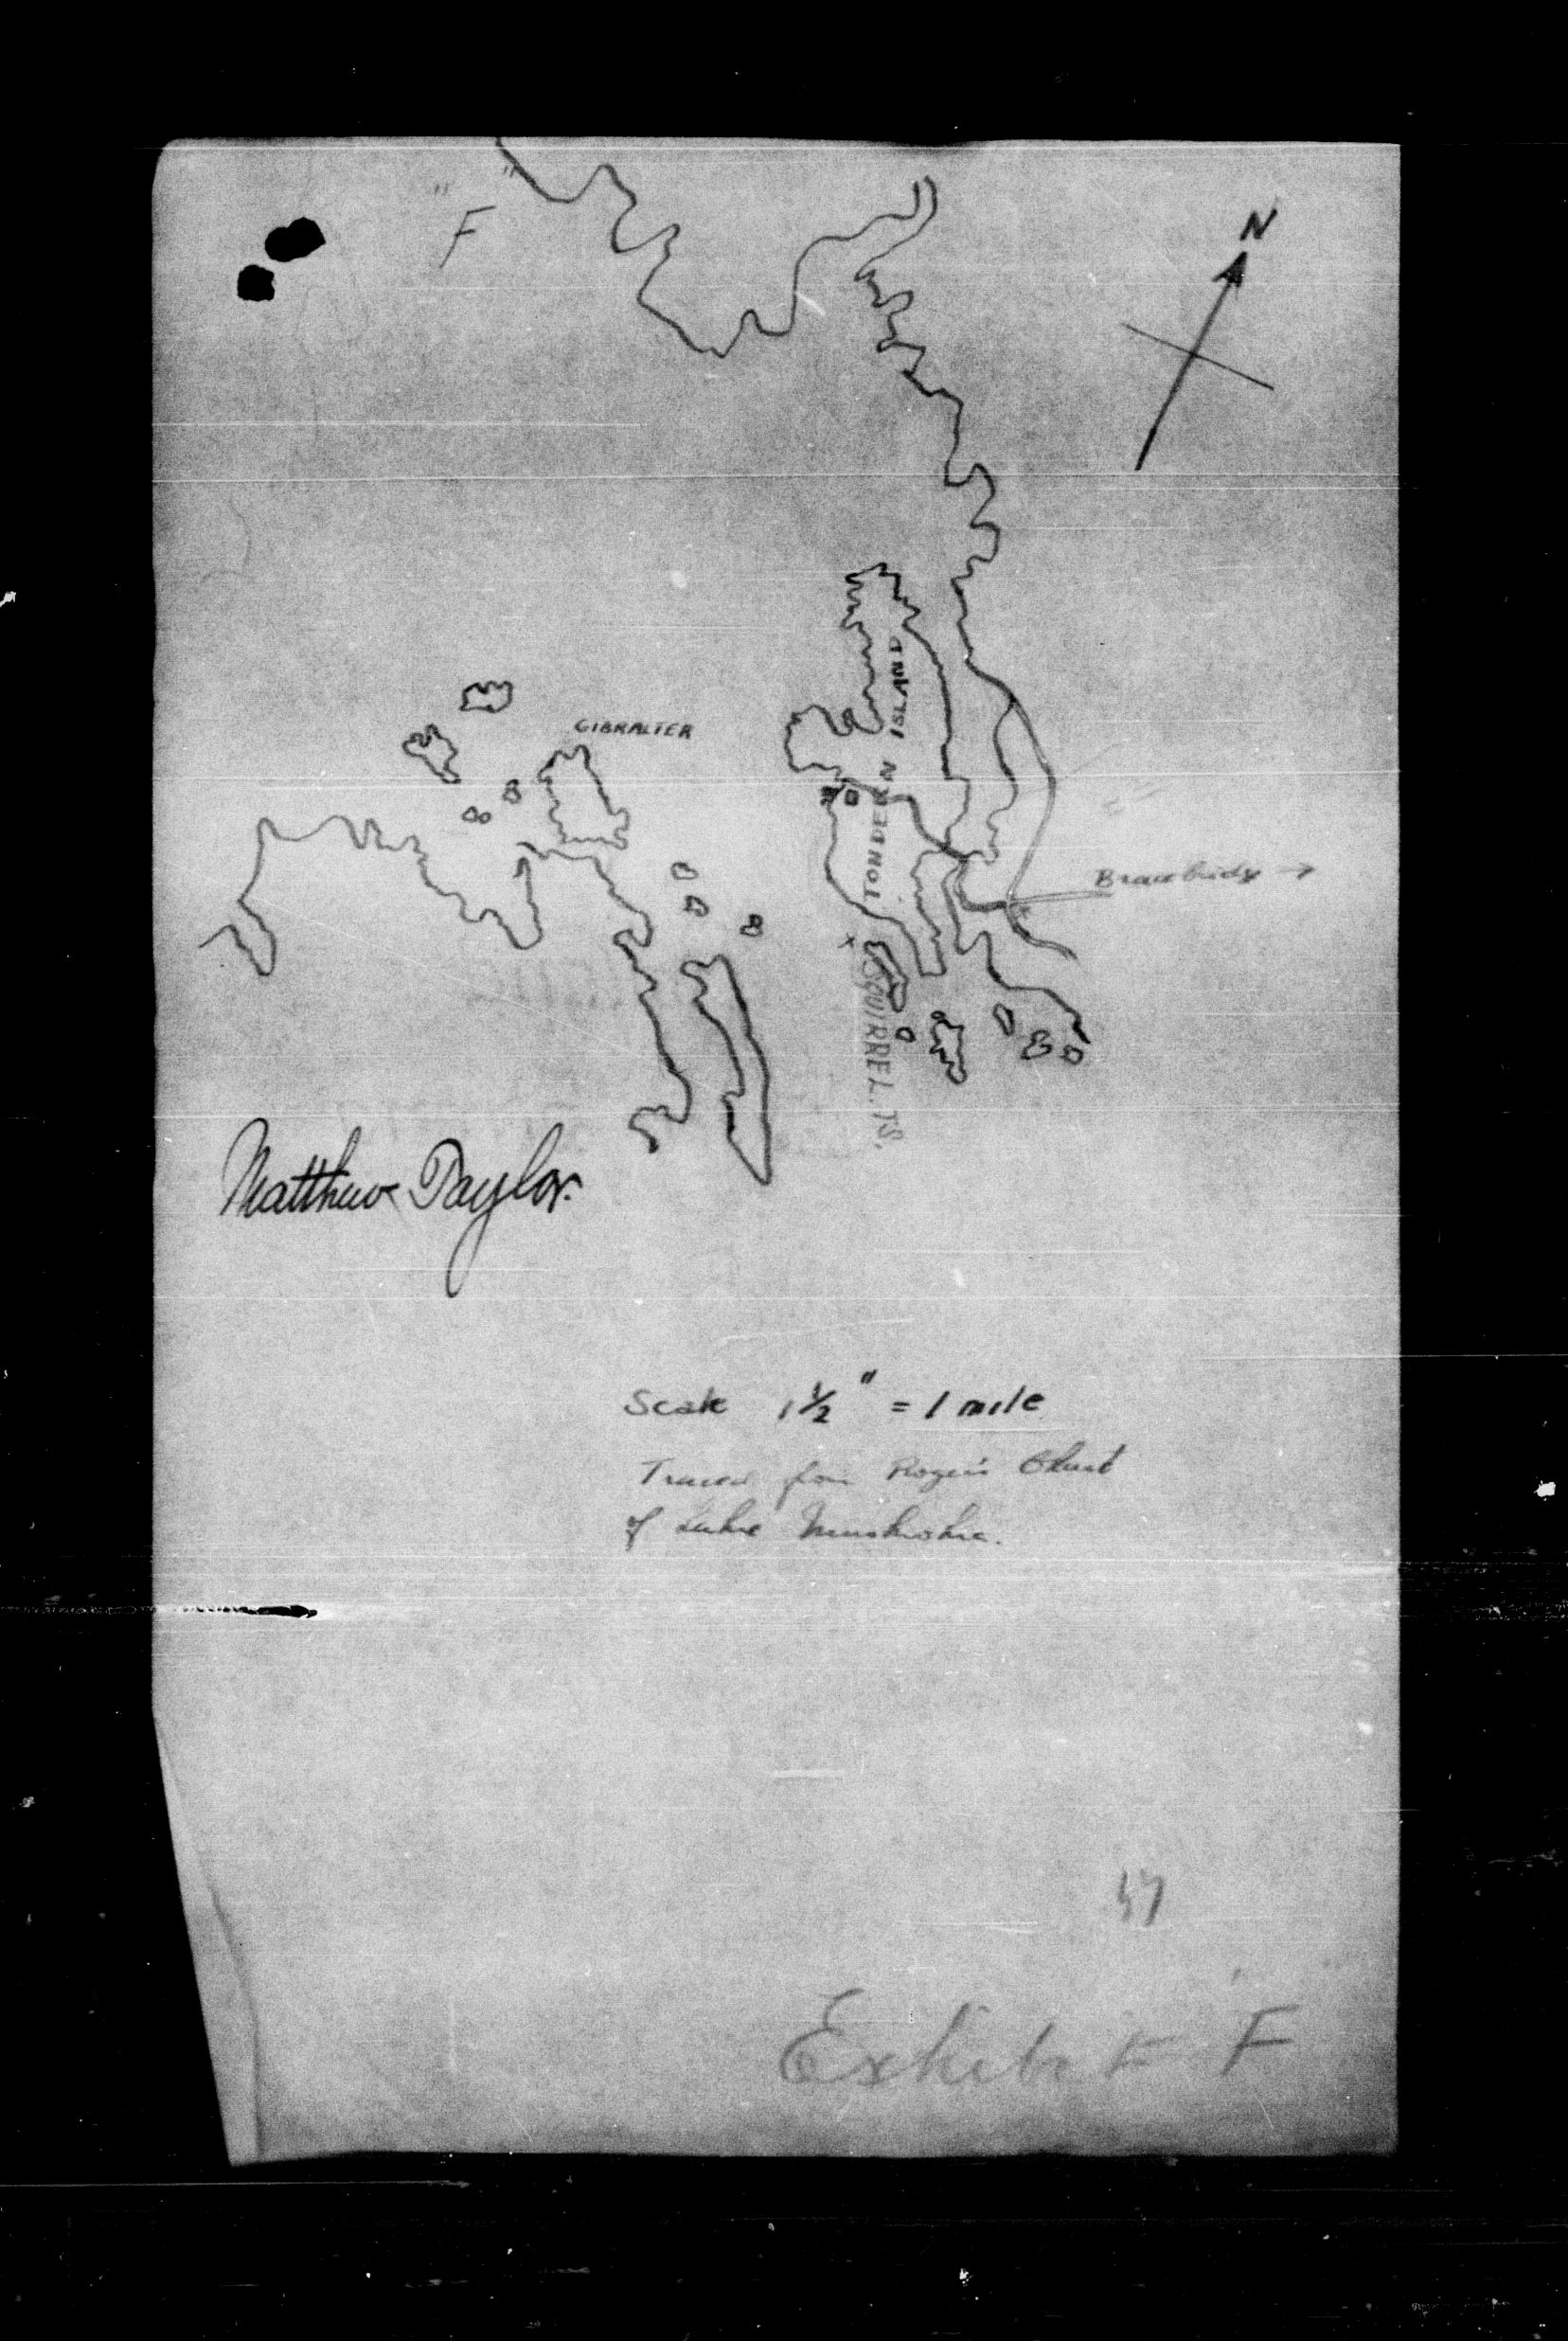 "F"
N
GIBRALTER
TONDERN ISLAND
Bracebridge →
x
SQUIRREL. IS.
Matthew Taylor.
Scale 1 1/2" = 1 mile
Traced from Rogers Chart
of Lake Muskoka.
Exhibit F